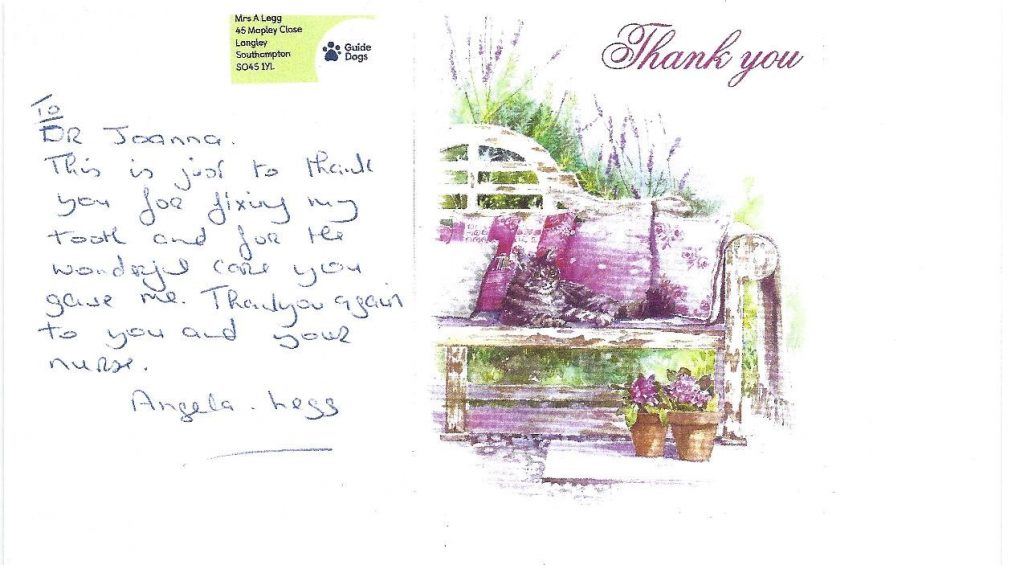 Mrs A Legg
45 Mapley Close
Langley
Southampton
SO45 1YL
Guide
Dogs
Thank you
To
DR Joanna.
This is just to thank
you for fixing my
tooth and for the
wonderful care you
gave me. Thankyou again
to you and your
nurse.
Angela. Legg